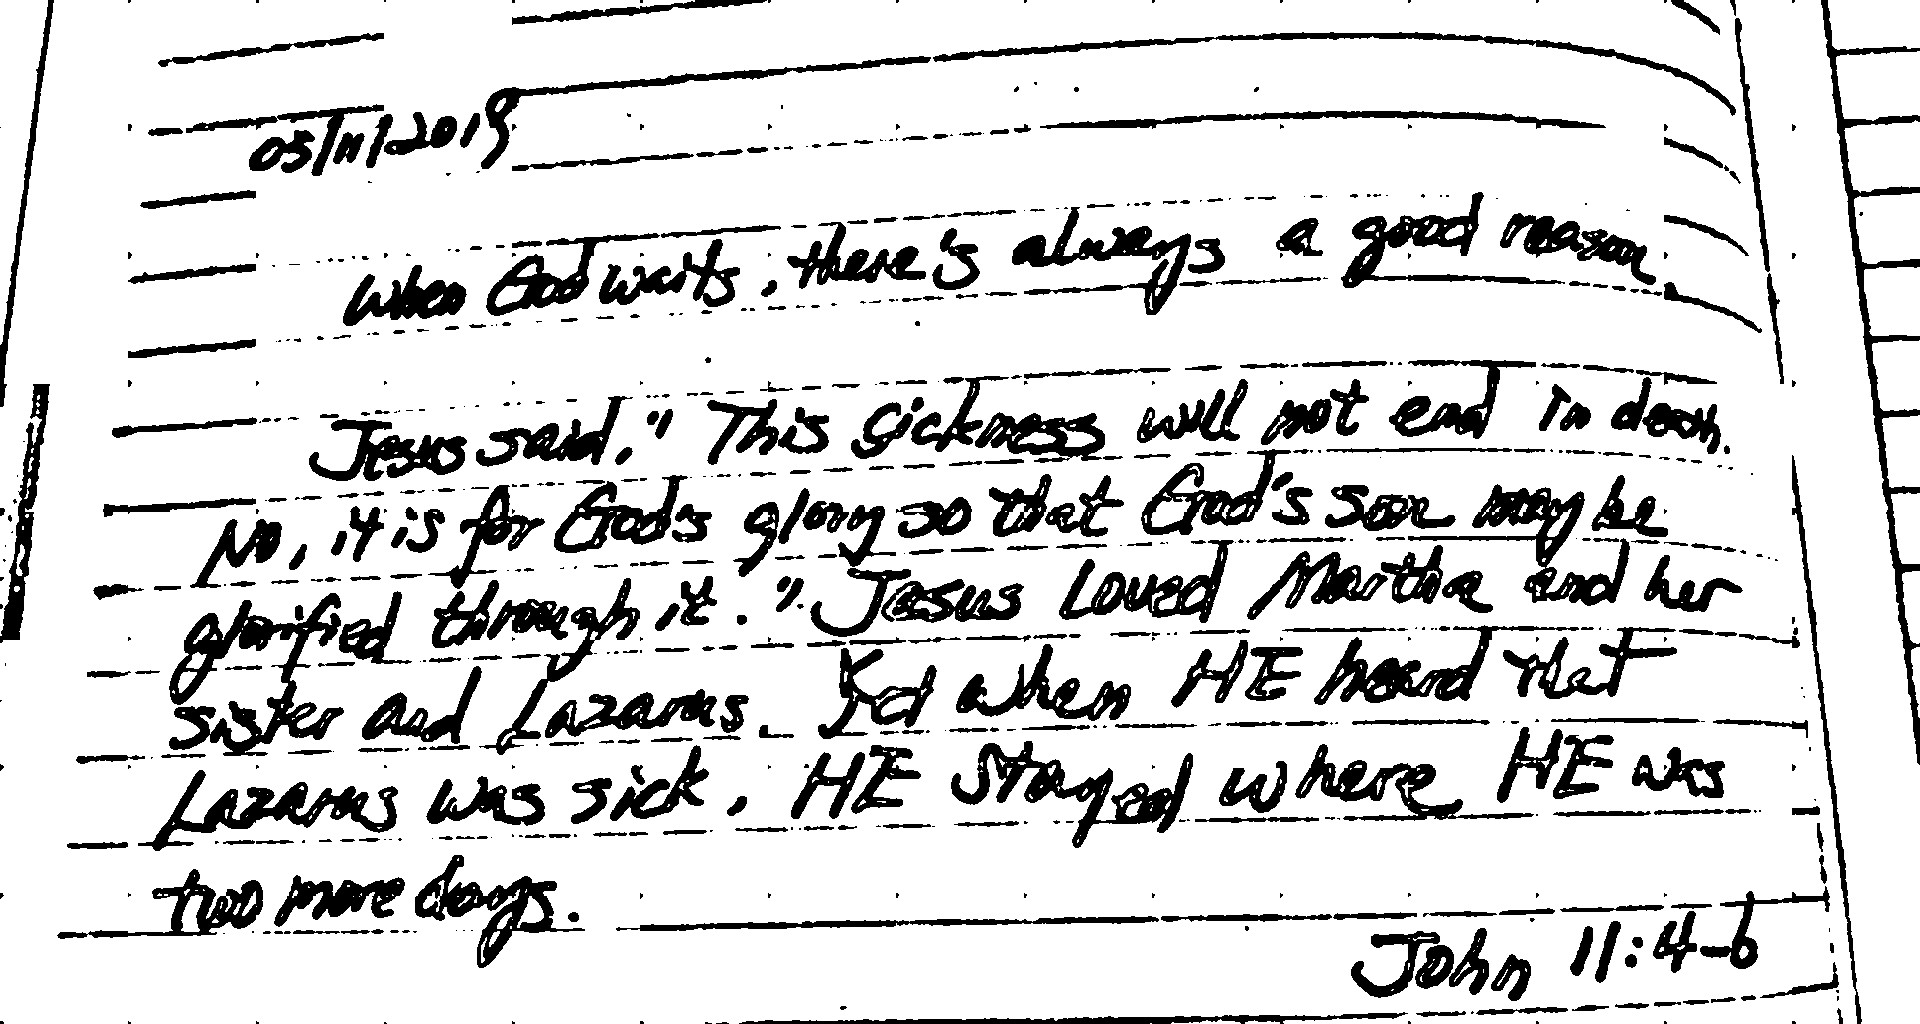 05/11/2019
When God waits, there's always a good reason.
Jesus said," This sickness will not end in death.
No, it is for God's glory so that God's son may be
glorified through it." Jesus Loved Martha and her
sister and Lazarus. Yet when HE heard that
Lazarus was sick, HE stayed where HE was
two more days.
John 11:4-6